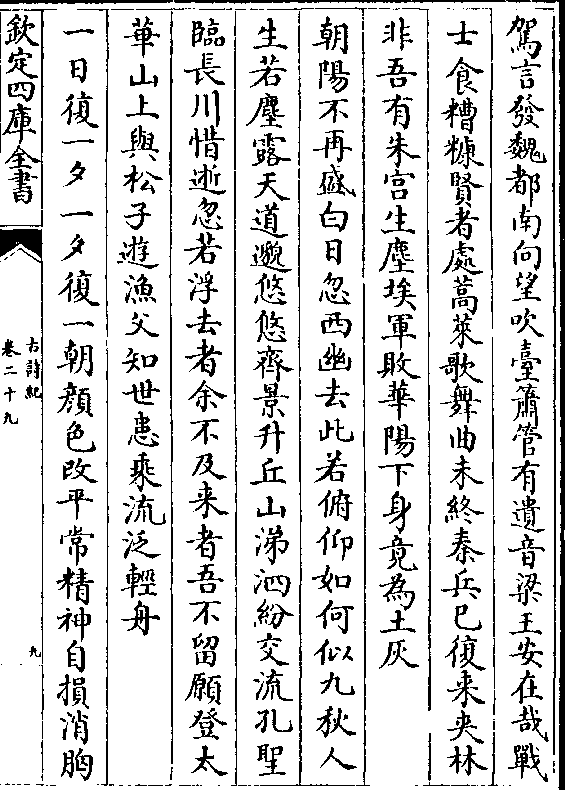 駕言發魏都南向望吹臺簫管有遺音梁王安在哉戰
士食糟糠賢者處蒿萊歌舞曲未終秦兵已復来夾林
非吾有朱宫生塵埃軍敗華陽下身竟為土灰
朝陽不再盛白日忽西幽去此若俯仰如何似九秋人
生若塵露天道邈悠悠齊景升丘山涕泗紛交流孔聖
臨長川惜逝忽若浮去者余不及来者吾不留願登太
華山上與松子遊漁父知世患乘流泛輕舟
一日復一夕一夕復一朝顔色改平常精神自損消胸
欽定四庫全書
古詩紀
卷二十九
九